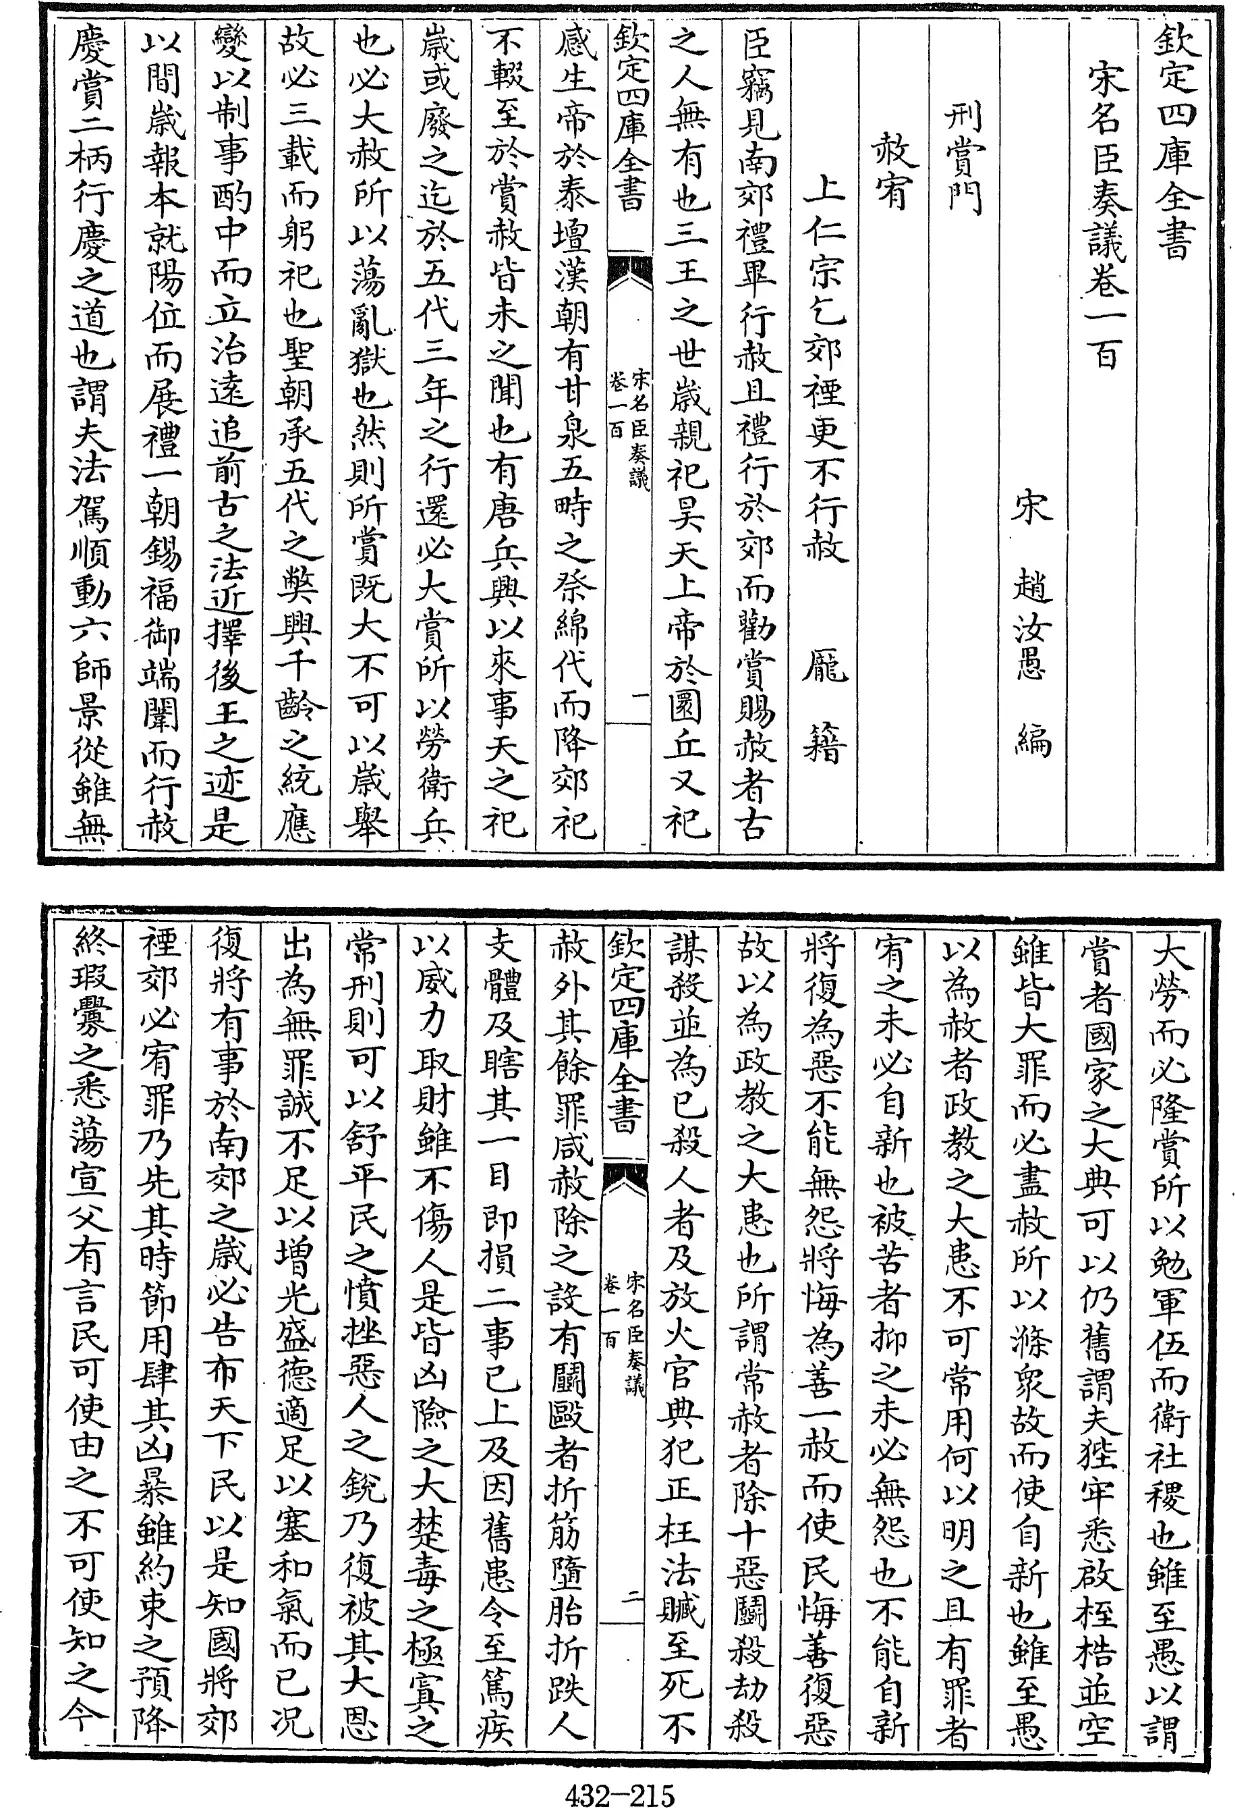 欽定四庫全書
宋名臣奏議卷一百
宋　趙汝愚　編
刑賞門
赦宥
上仁宗乞郊禋更不行赦　龎　籍
臣竊見南郊禮畢行赦且禮行於郊而勸賞賜赦者古
之人無有也三王之世歲親祀昊天上帝於圜丘又祀
欽定四庫全書
宋名臣奏議
卷一百
一
感生帝於泰壇漢朝有甘泉五畤之祭綿代而降郊祀
不輟至於賞赦皆未之聞也有唐兵興以來事天之祀
歲或廢之迄於五代三年之行還必大賞所以勞衛兵
也必大赦所以蕩亂獄也然則所賞既大不可以歲舉
故必三載而躬祀也聖朝承五代之弊興千齡之統應
變以制事酌中而立治遠追前古之法近擇後王之迹是
以間歲報本就陽位而展禮一朝錫福御端闈而行赦
慶賞二柄行慶之道也謂夫法駕順動六師景從雖無
大勞而必隆賞所以勉軍伍而衛社稷也雖至愚以謂
賞者國家之大典可以仍舊謂夫狴牢悉啟桎梏並空
雖皆大罪而必盡赦所以滌衆故而使自新也雖至愚
以為赦者政教之大患不可常用何以明之且有罪者
宥之未必自新也被苦者抑之未必無怨也不能自新
將復為惡不能無怨將悔為善一赦而使民悔善復惡
故以為政教之大患也所謂常赦者除十惡鬭殺劫殺
謀殺並為已殺人者及放火官典犯正枉法贓至死不
欽定四庫全書
宋名臣奏議
卷一百
二
赦外其餘罪咸赦除之設有鬭毆者折筋墮胎折跌人
支體及瞎其一目即損二事已上及因舊患令至篤疾
以威力取財雖不傷人是皆凶險之大楚毒之極寘之
常刑則可以舒平民之憤挫惡人之銳乃復被其大恩
出為無罪誠不足以增光盛德適足以塞和氣而已況
復將有事於南郊之歲必告布天下民以是知國將郊
禋郊必宥罪乃先其時節用肆其凶暴雖約束之預降
終瑕釁之悉蕩宣父有言民可使由之不可使知之今
432-215